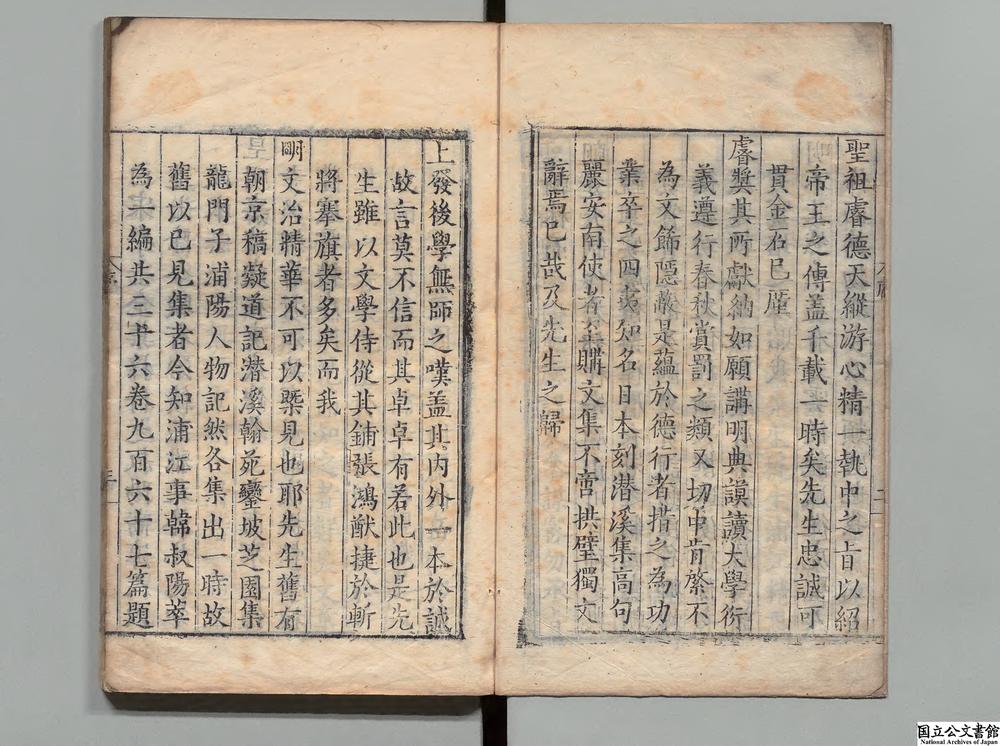 聖祖睿德天縱游心精一執中之旨以紹
帝王之傳盖千載一時矣先生忠誠可
貫金石已塵
睿奬其所獻納如願講明典謨讀大學衍
義遵行春秋賞罰之類又切中肯綮不
為文餙隱蔽是蘊於德行者措之為功
業卒之四夷知名日本刻潜溪集高句
麗安南使者至購文集不啻拱璧獨文
辭焉已哉及先生之歸
上發後學無師之嘆盖其内外一本於誠
故言莫不信而其卓卓有若此也是先
生雖以文學侍從其鋪張鴻猷捷於斬
將搴旗者多矣而我
明文治精華不可以槩見也耶先生舊有
朝京稿凝道記潜溪翰苑鑾坡芝園集
龍門子浦陽人物記然各集出一時故
舊以已見集者今知浦江事韓叔陽萃
為一編共三十六卷九百六十七篇題
国立公文書館
National Archives of Japan